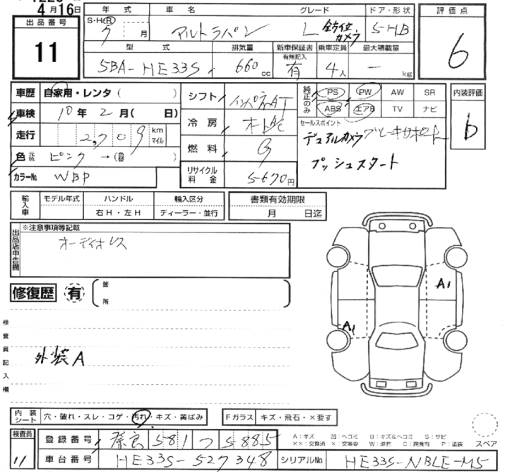 4月16日
出品番号 11
年式 S・H・R 7 月
車名 アルトラパン
グレード L 全方位カメラ
ドア・形状 5-HB
評価点 6
型式 5BA-HE33S
排気量 660 cc
新車保証書 有無記入 有
乗車定員 4人
最大積載量 - kg
車歴 自家用・レンタ( )
車検 10年2月( 日)
走行 2,709 km マイル
色 ピンク →( )
カラーNo. WBP
シフト インパネAT
冷房 オートAC
燃料 G
リサイクル料金 5,670円
純正のみ
PS PW AW SR
ABS エアB TV ナビ
セールスポイント
デュアルカメラブレーキサポート
プッシュスタート
内装評価 b
輸入車 モデル年式 ハンドル 右H・左H 輸入区分 ディーラー・並行
書類有効期限 月 日迄
出品店車申告
※注意事項等記載
オーディオレス
修復歴 有 箇所
A1
A1
検査員記入欄
外装A
内装シート 穴・破れ・スレ・コゲ・汚れ・キズ・黄ばみ
Fガラス キズ・飛石・×要す
検査員 11
登録番号 奈良 581 つ 5885
車台番号 HE33S-527348
シリアルNo. HE33S-NBLE-M5
スペア